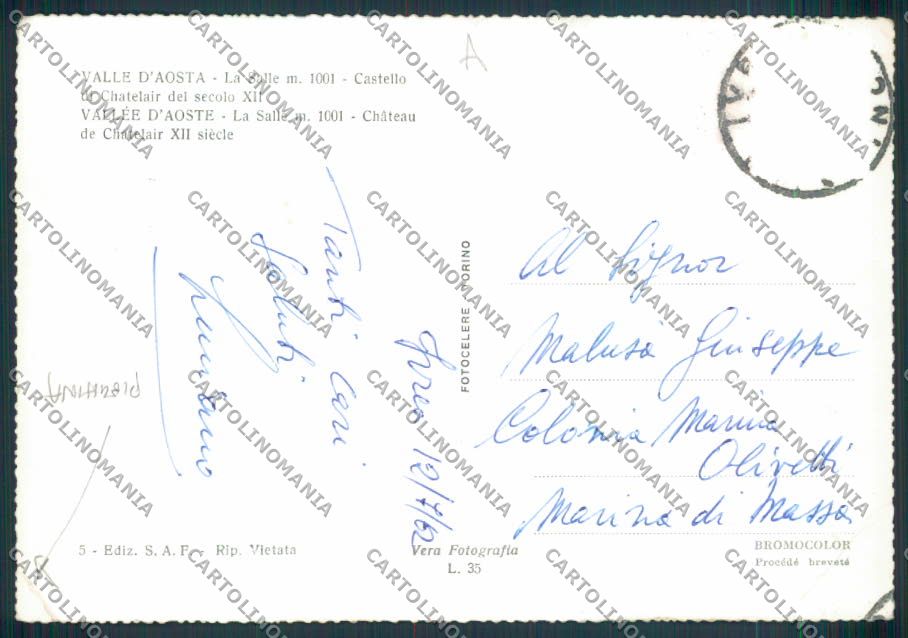 VALLE D'AOSTA - La Salle m. 1001 - Castello
di Chatelair del secolo XII
VALLÉE D'AOSTE - La Salle m. 1001 - Château
de Chatelair XII siècle
A
IV
Tanti cari
Saluti
Ivrea 12/7/62
FOTOCELERE TORINO
Al Signor
Malusà Giuseppe
Colonia Marina
Olivetti
Marina di Massa
5 - Ediz. S. A. F. - Rip. Vietata
Vera Fotografia
L. 35
BROMOCOLOR
Procédé breveté
CARTOLINOMANIA